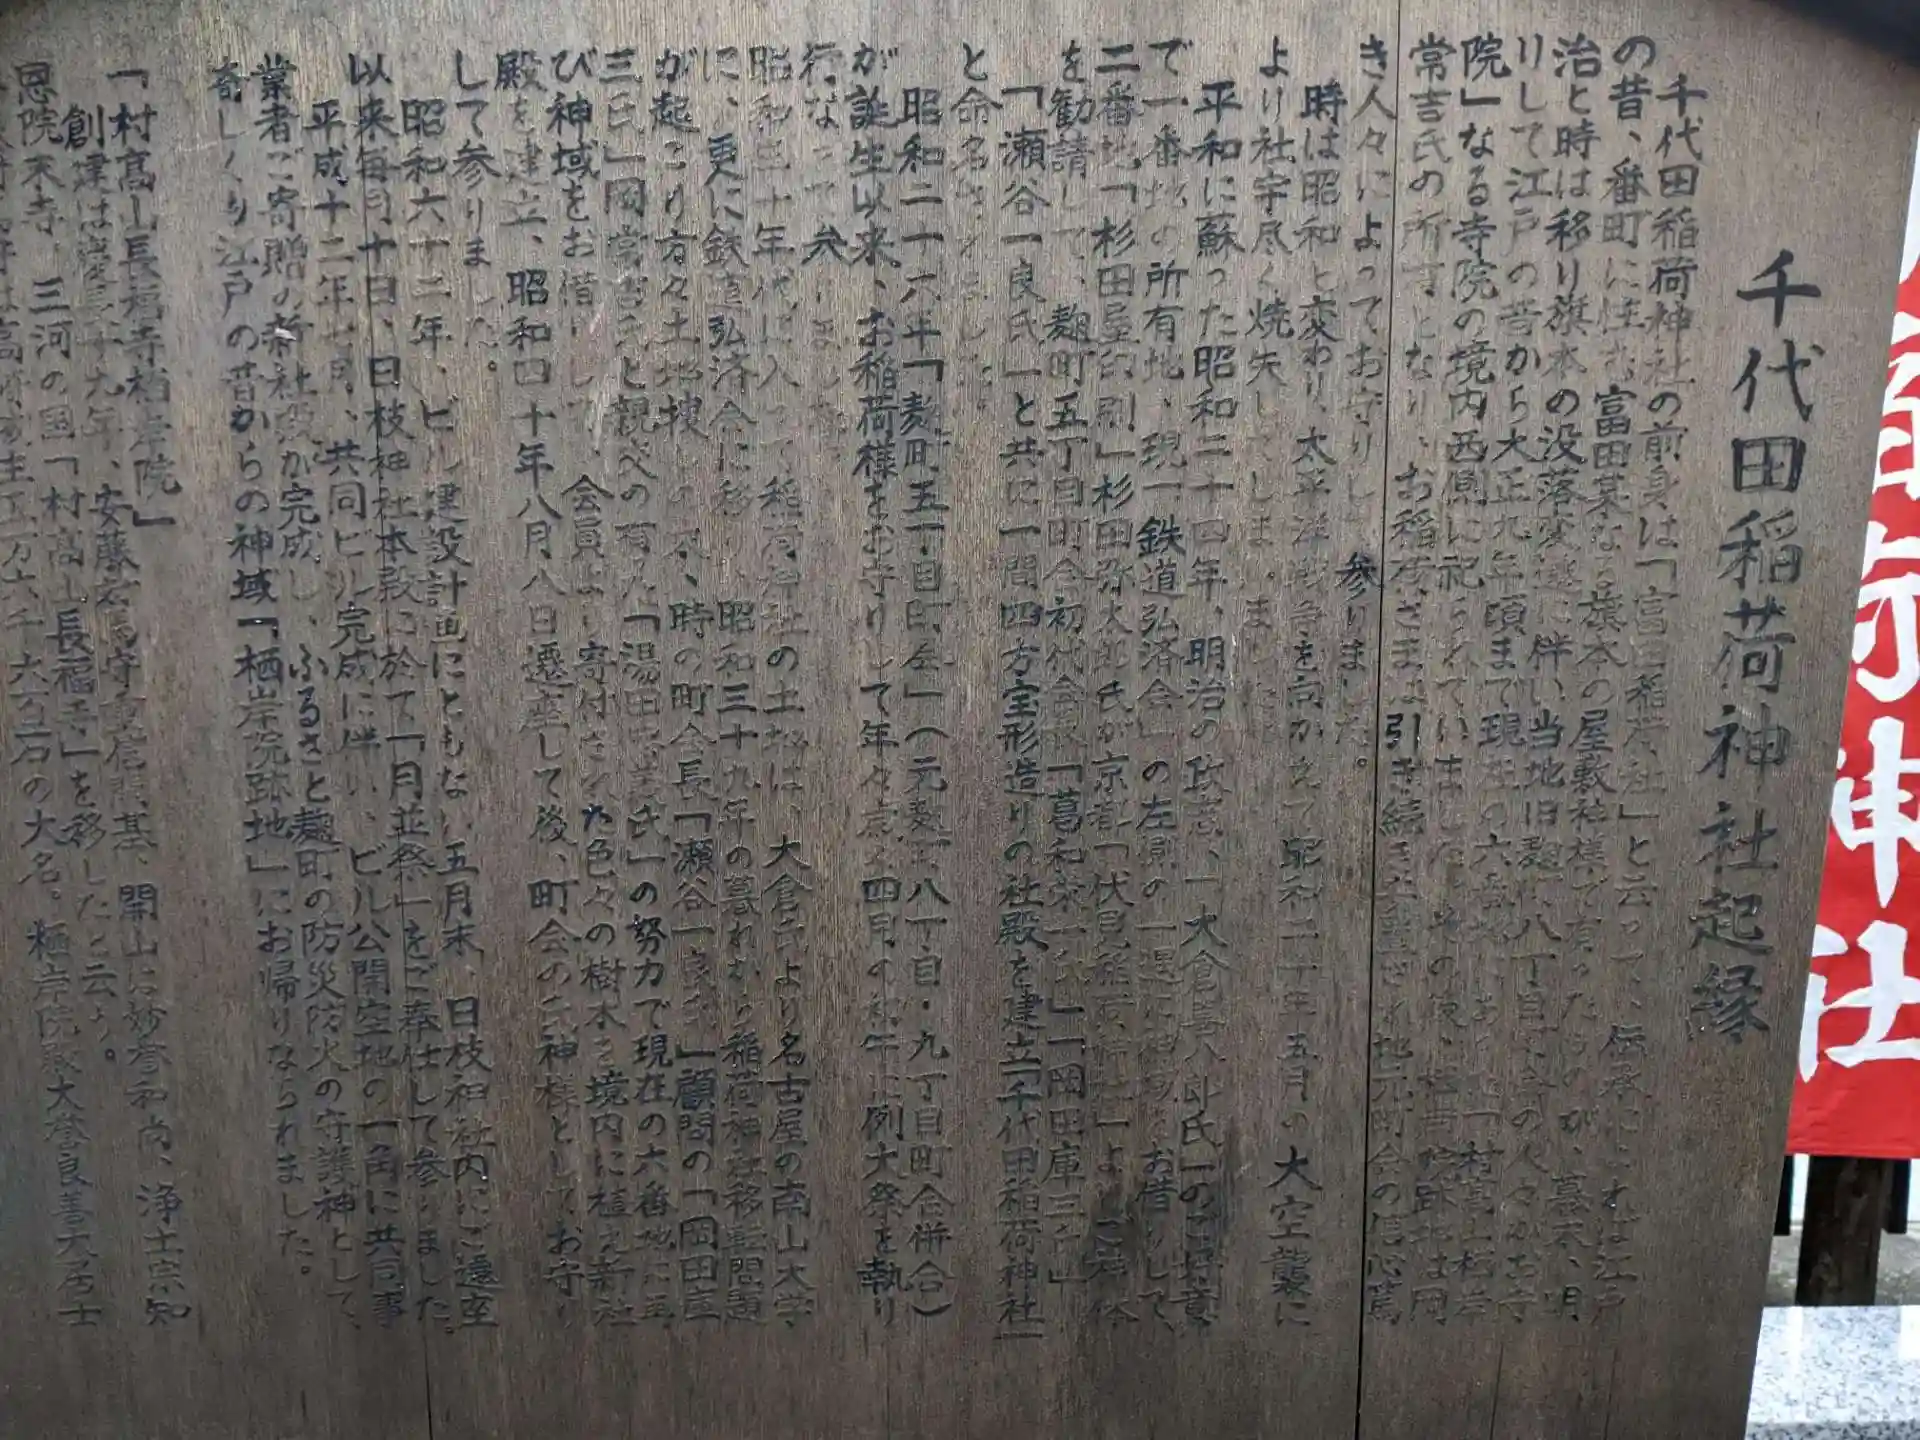 千代田稲荷神社起縁
千代田稲荷神社の前身は「富田稲荷社」と云って、伝承によれば江戸
の昔、番町に住む富田某なる旗本の屋敷神様で有ったものが、幕末、明
治と時は移り旗本の没落変遷に伴い、当地旧麹町八丁目
りして江戸の昔から大正九年頃まで現在の六番地
院」なる寺院の境内西側に祀られていました。その後、栖岸院跡地は岡
常吉氏の所有となり、お稲荷さまは引き続き地元町会の信心篤
き人々によってお守りし参りました。
時は昭和と変わり、太平洋戦争を向かえて昭和二十年五月の大空襲に
より社宇尽く焼失してしまいました。
平和に蘇った昭和二十四年、明治の政志、「大倉喜八郎氏」のご好意
で一番地の所有地、現、鉄道弘済会」の左側の一遇に神域をお借りして、
二番地「杉田屋印刷」杉田弥太郎氏が京都「伏見稲荷神社」よりご神体
を勧請して、麹町五丁目町会初代会長「葛和
「瀬谷一良氏」と共に一間四方宝形造りの社殿を建立「千代田稲荷神社」
と命名されました。
昭和二十六年「麹町五丁目町会」（元麹町八丁目・九丁目町会併合）
が誕生以来、お稲荷様をお守りして年々歳々四月の初午に例大祭を執り
行なって参りました。
昭和五十年代に入って稲荷神社の土地は、大倉氏より名古屋の南山大学
に、更に鉄道弘済会に移り、昭和三十九年の暮れから稲荷神社移転問題
が起こり方々土地捜しの末、時の町会長「瀬谷一良氏」顧問の「岡田庫
三氏」岡常吉氏と親交の有った「湯田 氏」の努力で現在の六番地に再
び神域をお借りして、会員より寄付された色々の樹木を境内に植え新社
殿を建立、昭和四十年八月八日遷座して後、町会の 神様としてお守り
して参りました。
昭和六十二年、ビル建設計画にともない五月末、日枝神社内にご遷座
以来毎月十日、日枝神社本殿に於て「月並祭」をご奉仕して参りました。
平成十二年七月、共同ビル完成に伴い、ビル公開空地の一角に共同事
業者ご寄贈の新社殿が完成し、ふるさと麹町の防災防火の守護神として、
奇しくも江戸の昔からの神域「栖岸院跡地」にお帰りなられました。
「村高山長福寺栖岸院」
創建は慶長十九年、安藤 守重信開基、開山は妙 和尚、浄土宗知
恩院末寺、三河の国「村高山長福寺」を移したと云う。
万六千六百石の大名。栖岸院殿大誉良善大居士
神社